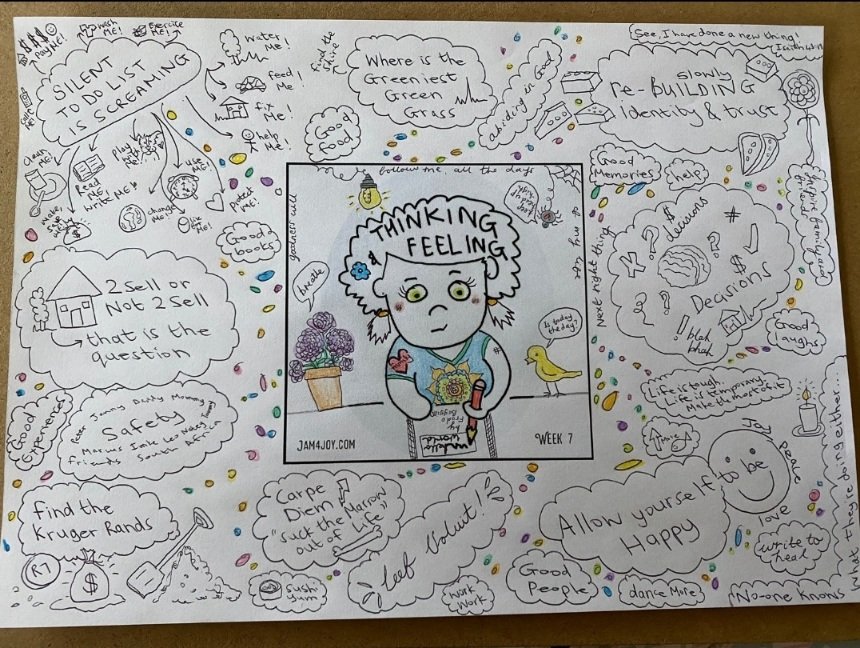 PAY ME!
wash ME!
EXERCISE ME!
SILENT
TO DO LIST
IS SCREAMING
water ME!
feed ME!
fix ME!
help ME!
call ME!
clean ME!
READ ME!
WRITE ME!
play with me!
use ME!
change ME!
protect
find the
Where is the
Greeniest
Green
Grass
abiding in God
See, I have done a new thing!
slowly
re-BUILDING
Identity & trust
Good
Food
Good
Memories
help
Good
books
follow me all the days
goodness will
of my life
THINKING
FEELING
breathe
Is today
the day?
JAM4JOY.COM
WEEK 7
Next right thing
decisions
#
$
Decisions
blah
blah
Good
laughs
2 Sell or
Not 2 Sell
that is the
question
Good
Experiences
Safety
friends
South Africa
Life is tough.
Life is temporary.
Make the most of it
find the
Kruger Rands
R7
$
Carpe
Diem
"Suck the Marrow
out of Life"
Leef Voluit!
Sushi
yum
work
work
Allow yourself to be
Happy
Joy
Peace
love
write to
heal
Good
People
dance More
No-one knows
what they're doing either...